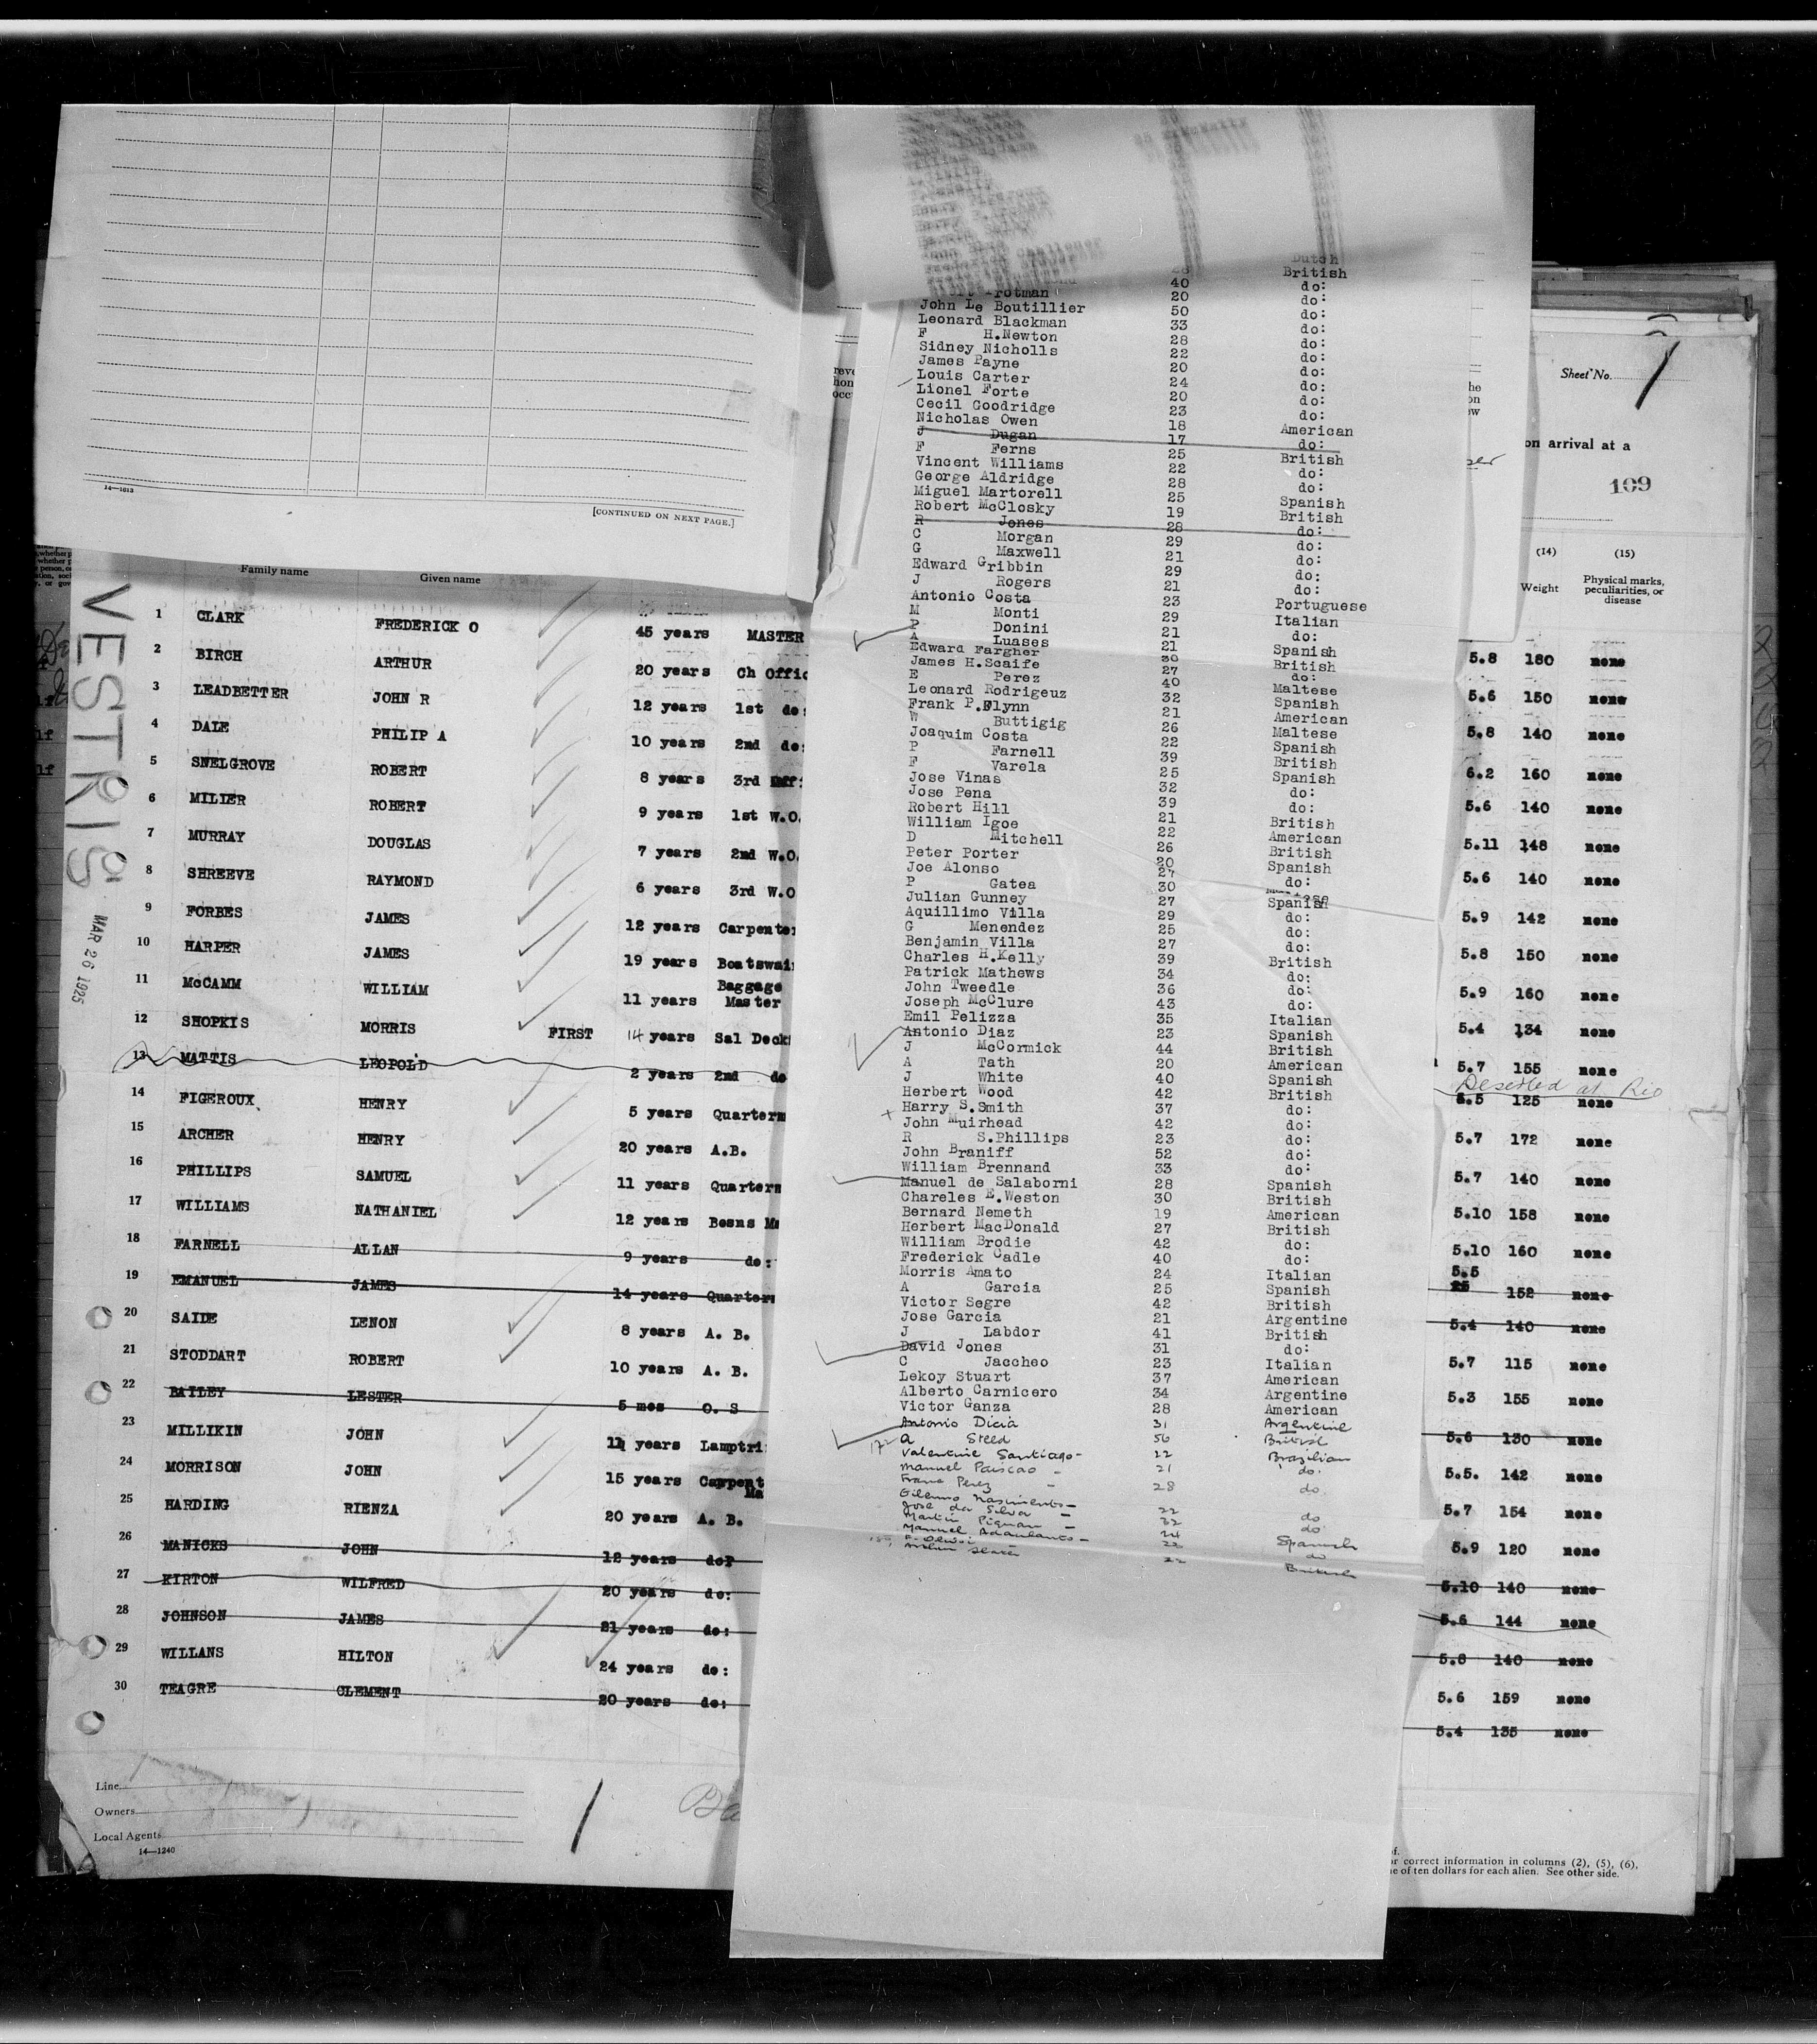 14—1613
[CONTINUED ON NEXT PAGE.]
Family name Given name
VESTRIS
MAR 26 1925
1 CLARK FREDERICK O 45 years MASTER
2 BIRCH ARTHUR 20 years Ch Offic
3 LEADBETTER JOHN R 12 years 1st do:
4 DALE PHILIP A 10 years 2nd do:
5 SNELGROVE ROBERT 8 years 3rd
6 MILIER ROBERT 9 years 1st W.O.
7 MURRAY DOUGLAS 7 years 2nd W.O.
8 SHREEVE RAYMOND 6 years 3rd W.O
9 FORBES JAMES 12 years Carpenter
10 HARPER JAMES 19 years Boatswain
11 McCAMM WILLIAM 11 years Baggage Master
12 SHOPKIS MORRIS FIRST 14 years Sal Deck
13 MATTIS LEOPOLD 2 years 2nd do
14 FIGEROUX HENRY 5 years Quarterm
15 ARCHER HENRY 20 years A.B.
16 PHILLIPS SAMUEL 11 years Quarterm
17 WILLIAMS NATHANIEL 12 years Bosns Ma
18 FARNELL ALLAN 9 years do:
19 EMANUEL JAMES 14 years Quarterm
20 SAIDE LENON 8 years A. B.
21 STODDART ROBERT 10 years A. B.
22 BAILEY LESTER 5 mos O. S
23 MILLIKIN JOHN 11 years Lamptri
24 MORRISON JOHN 15 years Carpent Ma
25 HARDING RIENZA 20 years A. B.
26 MANICKS JOHN 12 years do?
27 KIRTON WILFRED 20 years do:
28 JOHNSON JAMES 21 years do:
29 WILLANS HILTON 24 years do:
30 TEAGRE CLEMENT 20 years do:
Line
Owners
Local Agents
14—1240
1
Dutch
28 British
40 do:
Trotman 20 do:
John Le Boutillier 50 do:
Leonard Blackman 33 do:
F H.Newton 28 do:
Sidney Nicholls 22 do:
James Payne 20 do:
Louis Carter 24 do:
Lionel Forte 20 do:
Cecil Goodridge 23 do:
Nicholas Owen 18 American
J Dugan 17 do:
F Ferns 25 British
Vincent Williams 22 do:
George Aldridge 28 do:
Miguel Martorell 25 Spanish
Robert McClosky 19 British
R Jones 28 do:
C Morgan 29 do:
G Maxwell 21 do:
Edward Gribbin 29 do:
J Rogers 21 do:
Antonio Costa 23 Portuguese
M Monti 29 Italian
P Donini 21 do:
A Luases 21 Spanish
Edward Fargher 30 British
James H.Scaife 27 do:
E Perez 40 Maltese
Leonard Rodrigeuz 32 Spanish
Frank P.Flynn 21 American
W Buttigig 26 Maltese
Joaquim Costa 22 Spanish
P Farnell 39 British
F Varela 25 Spanish
Jose Vinas 32 do:
Jose Pena 39 do:
Robert Hill 21 British
William Igoe 22 American
D Mitchell 26 British
Peter Porter 20 Spanish
Joe Alonso 27 do:
P Gatea 30
Julian Gunney 27 Spanish
Aquillimo Villa 29 do:
G Menendez 25 do:
Benjamin Villa 27 do:
Charles H.Kelly 39 British
Patrick Mathews 34 do:
John Tweedle 36 do:
Joseph McClure 43 do:
Emil Pelizza 35 Italian
Antonio Diaz 23 Spanish
J McCormick 44 British
A Tath 20 American
J White 40 Spanish
Herbert Wood 42 British
Harry S.Smith 37 do:
John Muirhead 42 do:
R S.Phillips 23 do:
John Braniff 52 do:
William Brennand 33 do:
Manuel de Salaborni 28 Spanish
Chareles E.Weston 30 British
Bernard Nemeth 19 American
Herbert MacDonald 27 British
William Brodie 42 do:
Frederick Cadle 40 do:
Morris Amato 24 Italian
A Garcia 25 Spanish
Victor Segre 42 British
Jose Garcia 21 Argentine
J Labdor 41 British
David Jones 31 do:
C Jaccheo 23 Italian
Lekoy Stuart 37 American
Alberto Carnicero 34 Argentine
Victor Ganza 28 American
Antonio Dicia 31 Argentine
A Steed 56 British
Valentine Santiago 22 Brazilian
Manuel Paiscao 21 do.
Franc Perez 28 do
Nasimento
Jose da Silva 22 do
Martin 32 do
Manuel 24 Spanish
22 do
22 British
Sheet No. 1
on arrival at a
109
(14) (15)
Weight Physical marks, peculiarities, or disease
5.8 180 none
5.6 150 none
5.8 140 none
6.2 160 none
5.6 140 none
5.11 148 none
5.6 140 none
5.9 142 none
5.8 150 none
5.9 160 none
5.4 134 none
5.7 155 none
Deserted at Rio
5.5 125 none
5.7 172 none
5.7 140 none
5.10 158 none
5.10 160 none
5.5 152 none
5.4 140 none
5.7 115 none
5.3 155 none
5.6 130 none
5.5. 142 none
5.7 154 none
5.9 120 none
5.10 140 none
5.6 144 none
5.8 140 none
5.6 159 none
5.4 135 none
or correct information in columns (2), (5), (6),
of ten dollars for each alien. See other side.